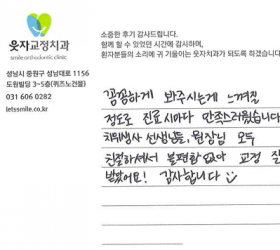 웃자교정치과
smile orthodontic clinic
성남시 중원구 성남대로 1156
도원빌딩 3~5층(위즈노건물)
031 606 0282
letssmile.co.kr
소중한 후기 감사드립니다.
함께 할 수 있었던 시간에 감사하며,
환자분들의 소리에 귀 기울이는 웃자치과가 되도록 하겠습니다
꼼꼼하게 봐주시는게 느껴질
정도로 진료시마다 만족스러웠습니다
치위생사 선생님들, 원장님 모두
친절하셔서 불편함 없이 교정 잘
받았어요! 감사합니다